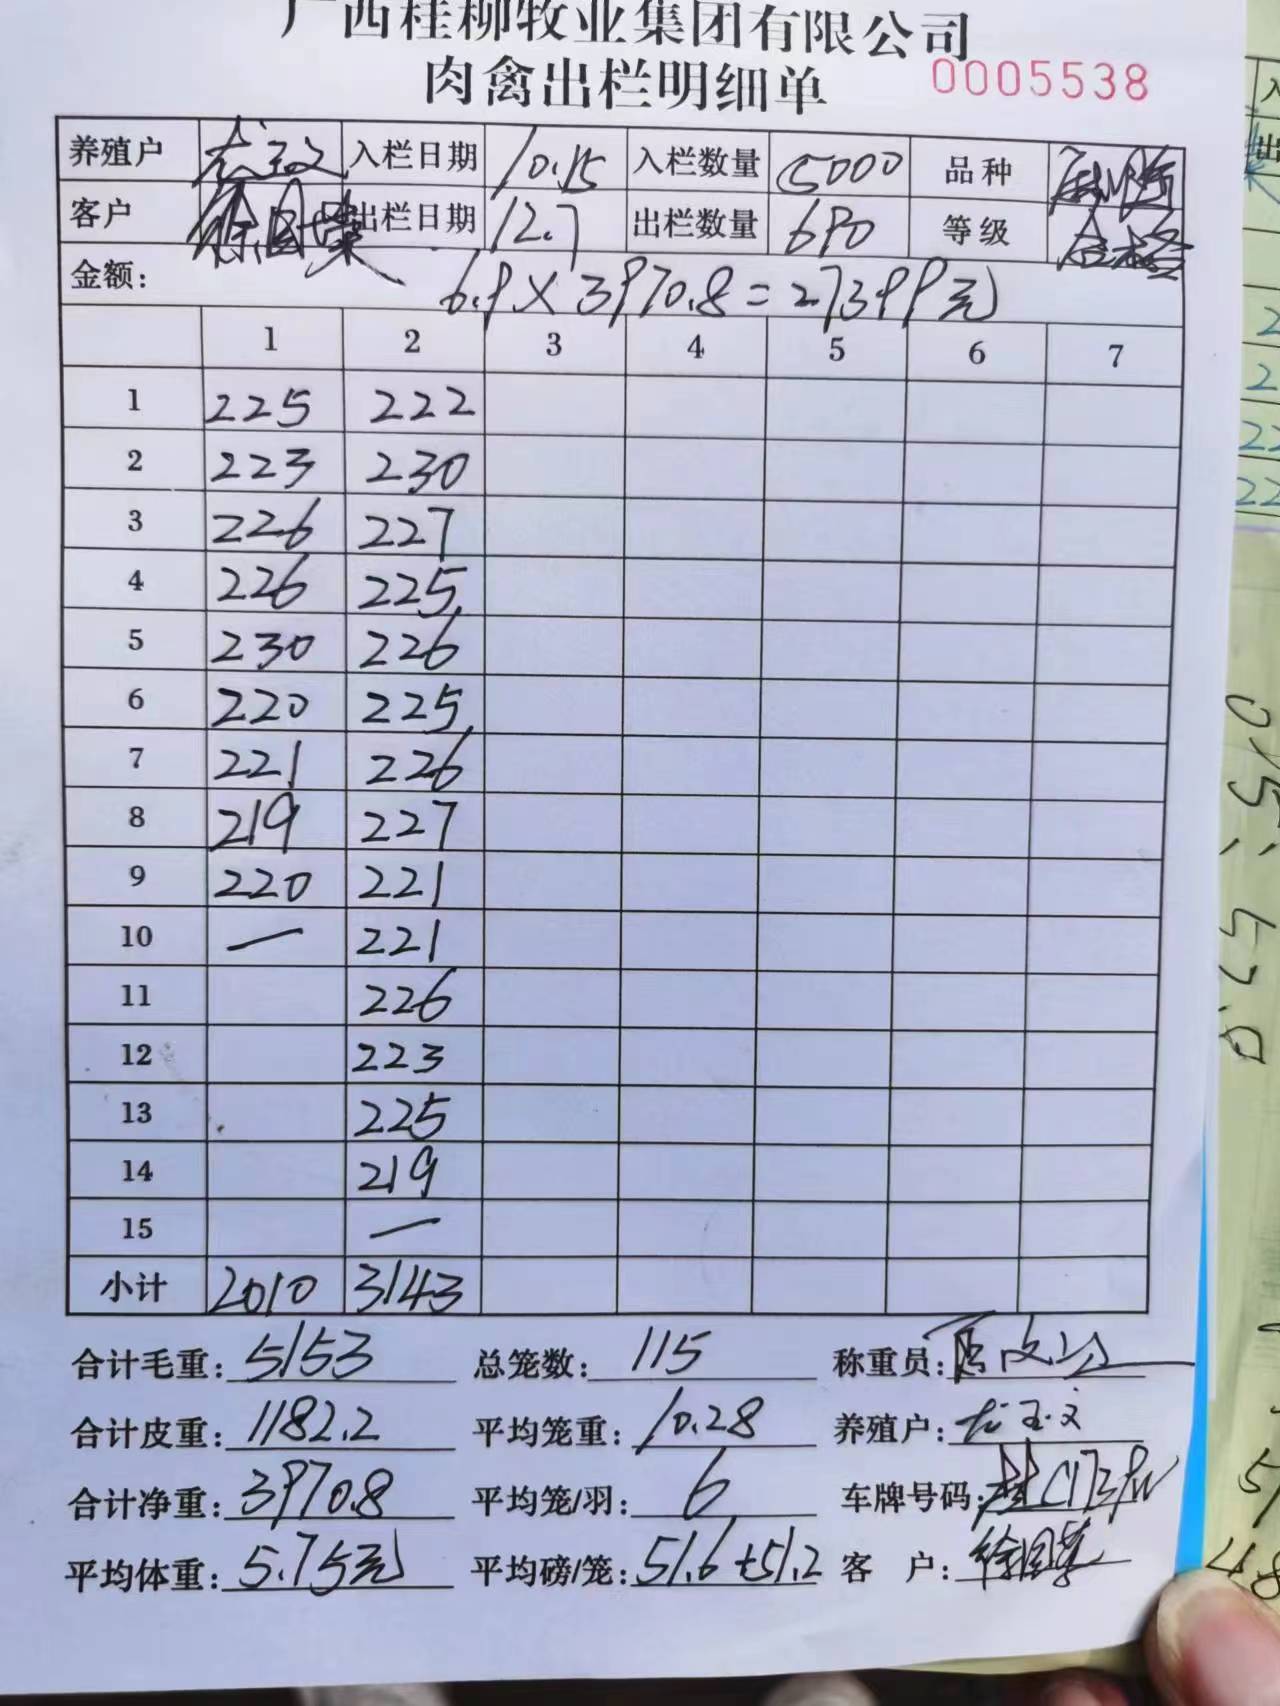 广西桂柳牧业集团有限公司
肉禽出栏明细单 0005538
养殖户 入栏日期 10.15 入栏数量 5000 品种
客户 徐国集 出栏日期 12.7 出栏数量 690 等级 合格
金额: 6.9×3970.8=27399元
1 2 3 4 5 6 7
1 225 222
2 223 230
3 226 227
4 226 225
5 230 226
6 220 225
7 221 226
8 219 227
9 220 221
10 — 221
11 226
12 223
13 225
14 219
15 —
小计 2010 3143
合计毛重: 5153 总笼数: 115 称重员:
合计皮重: 1182.2 平均笼重: 10.28 养殖户:
合计净重: 3970.8 平均笼/羽: 6 车牌号码:
平均体重: 5.75元 平均磅/笼: 51.6 51.2 客 户: